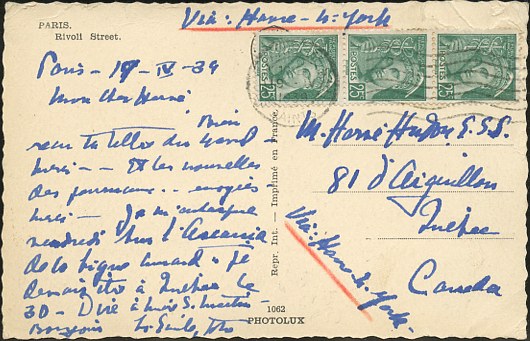 PARIS.
Rivoli Street.
Via: Havre-N-York
Paris - 19 - IV - 39
Mon cher Hervé
Bien
reçu ta lettre du
merci - Et les nouvelles
des journaux .. 
merci - Je m'embarque
vendredi sur l'Ascania
de la ligne Cunard - je
devrais être à Québec le
30 - Dire à
Bonjour
POSTES 25
POSTES 25
POSTES 25
Repr. Int. - Imprimé en France
1062
PHOTOLUX
M. Hervé E.S.S.
81 d'Aiguillon
Québec
Canada
Via: Havre N-York-